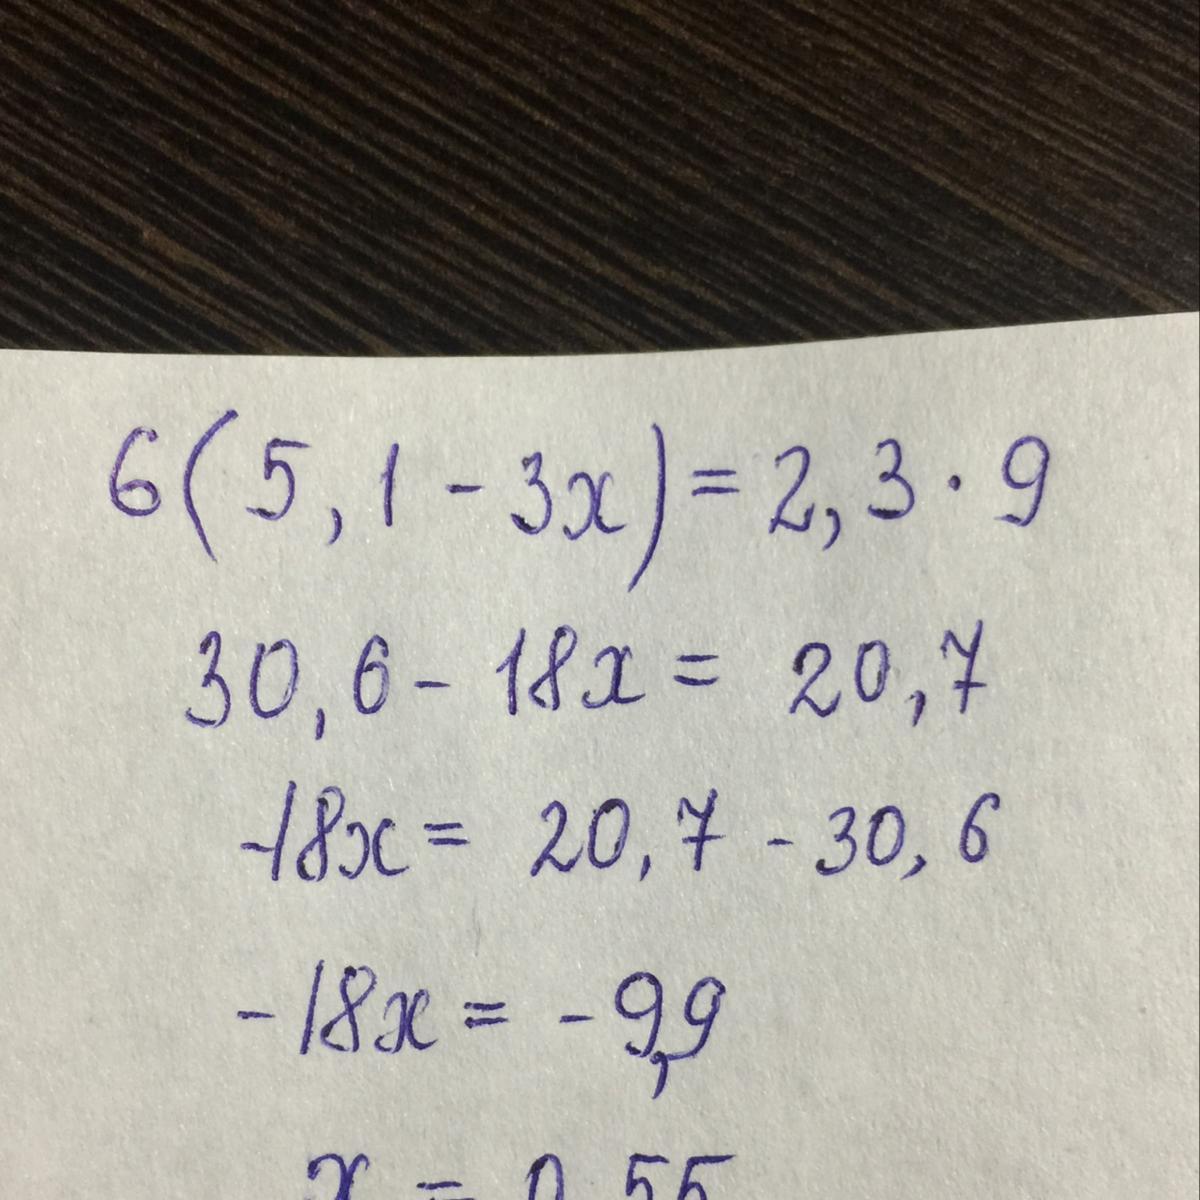 6(5,1-3x)=2,3·9
30,6-18x=20,7
-18x=20,7-30,6
-18x=-9,9
x=0,55